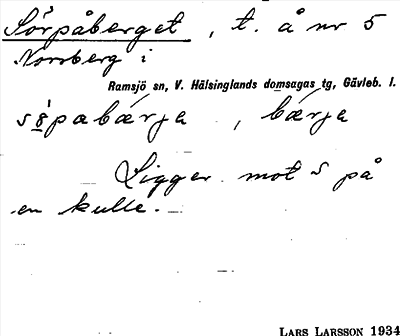 Sörpåberget, t. å nr 5
Norrberg i
Ramsjö sn, V. Hälsinglands domsagas tg, Gävleb. l.
bærja
Ligger mot S på
en kulle.
LARS LARSSON 1934